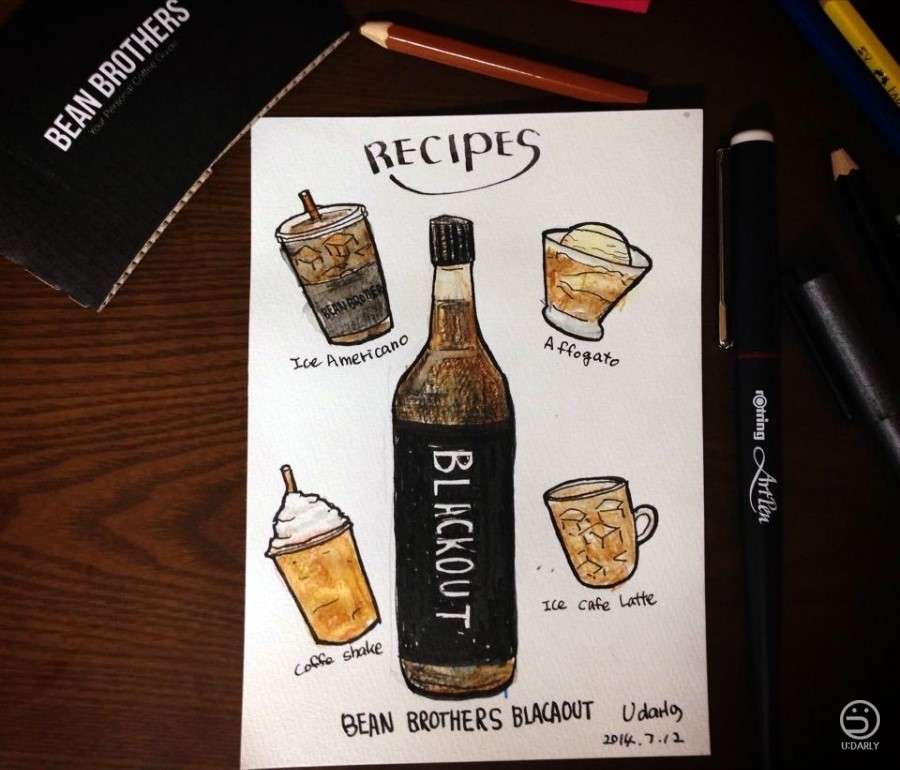 BEAN BROTHERS
Your Personal Coffee Guide
RECIPES
BEAN BROTHER
Ice Americano
Affogato
BLACKOUT
Coffe shake
Ice cafe Latte
BEAN BROTHERS BLACAOUT
Udarly
2014.7.12
rotring
ArtPen
U:DARLY